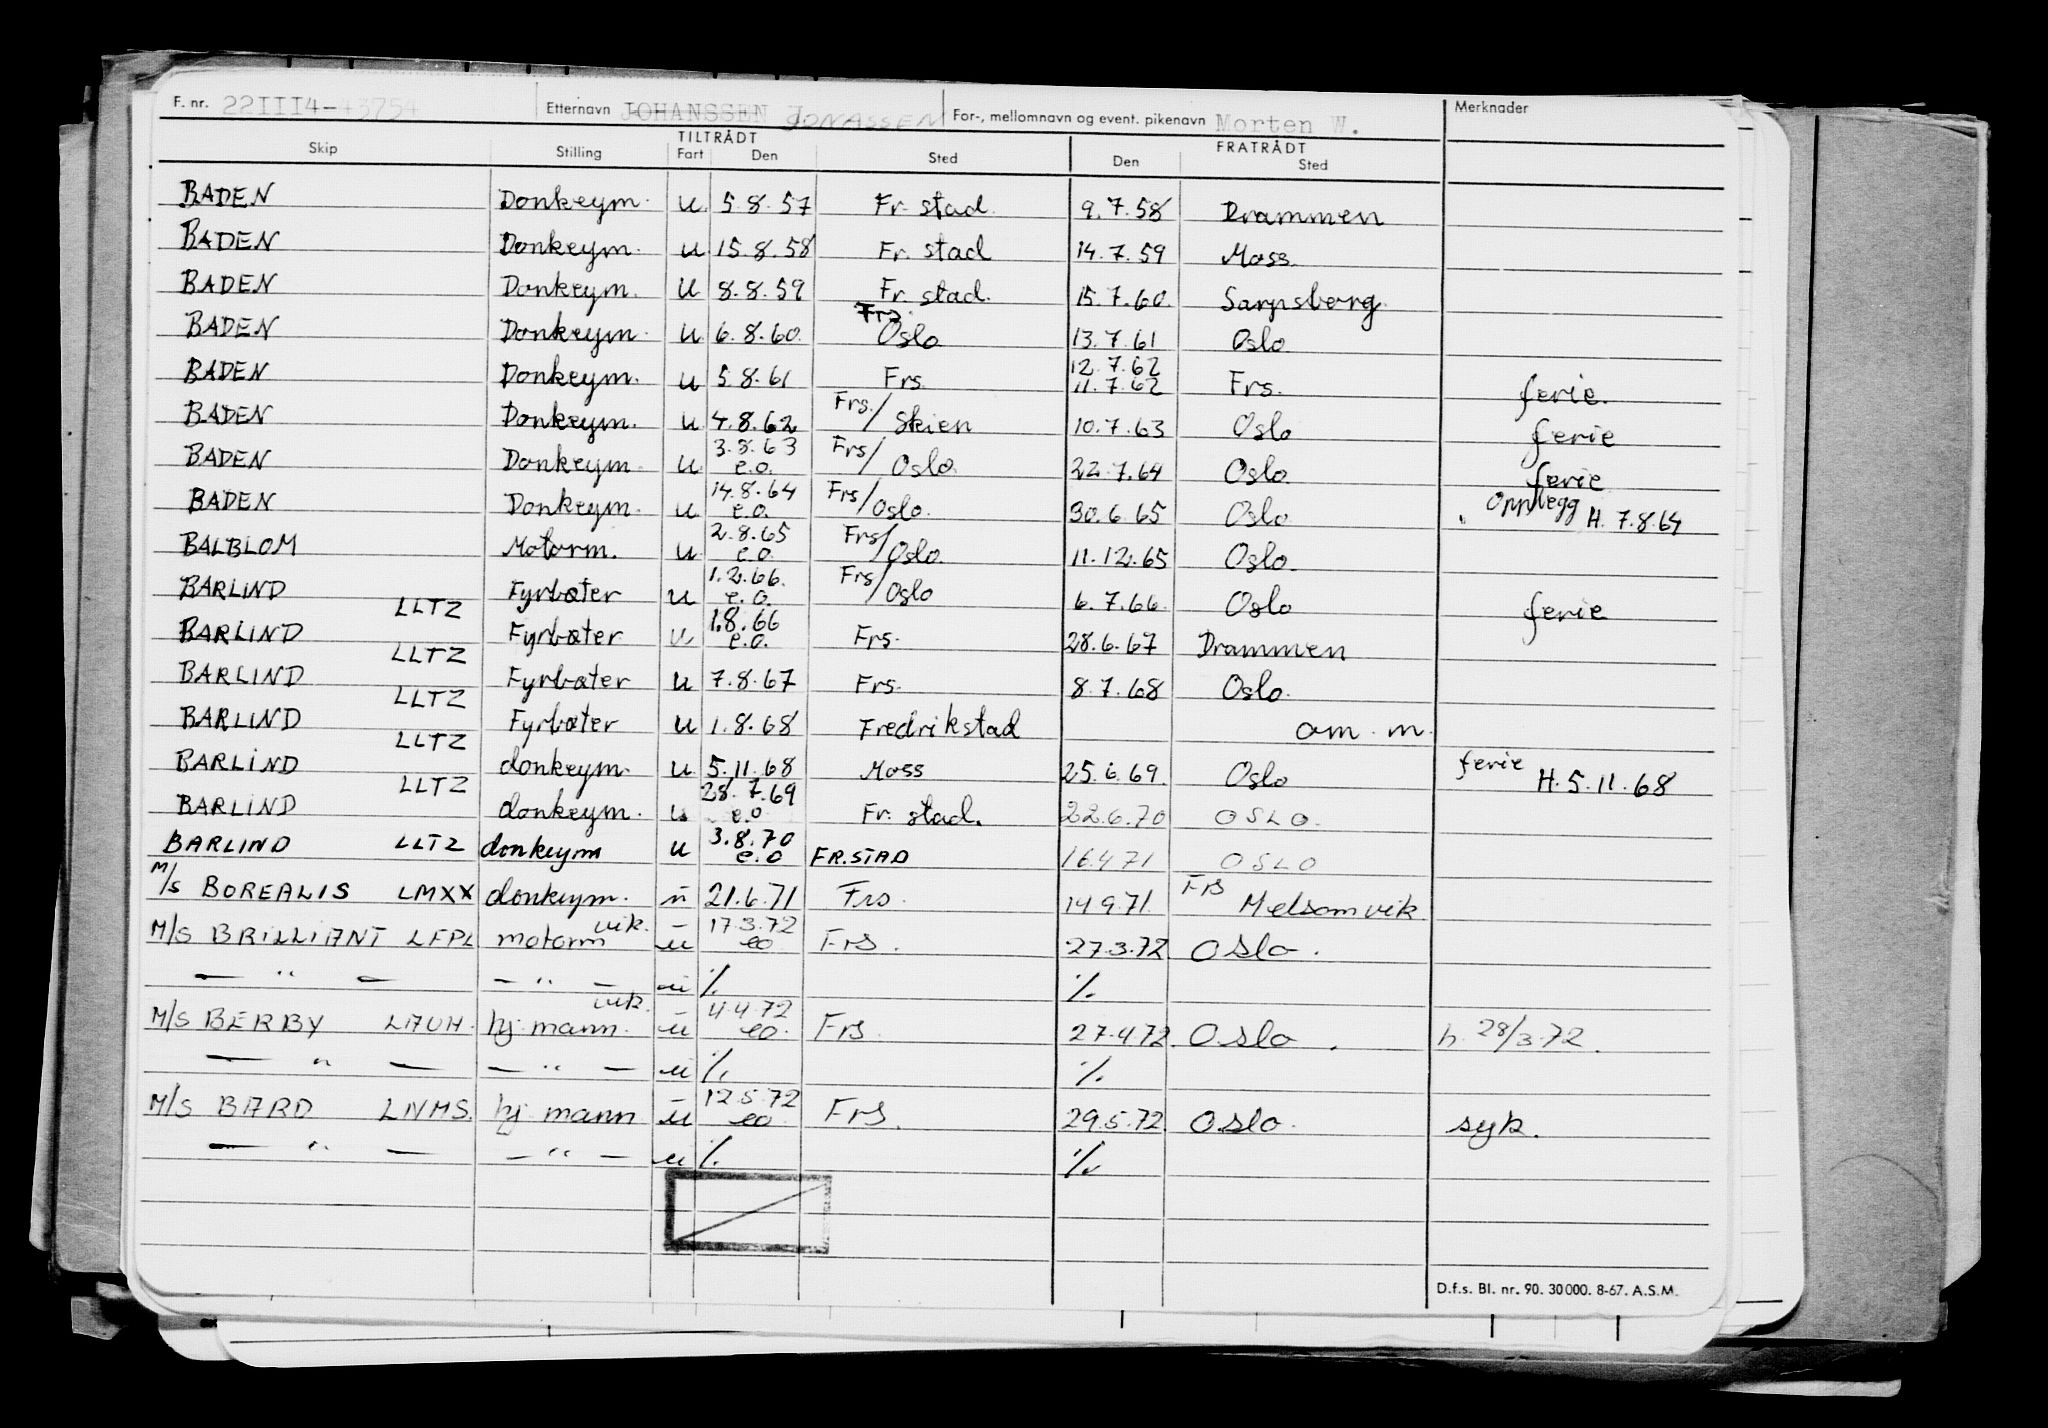 F. nr. 221114-43754 Etternavn JOHANSSEN JONASSEN For-, mellomnavn og event. pikenavn Morten W. Merknader
TILTRÅDT FRATRÅDT
Skip Stilling Fart Den Sted Den Sted
BADEN Donkeym. u 5.8.57 Fr. stad. 9.7.58 Drammen
BADEN Donkeym. u 15.8.58 Fr. stad 14.7.59 Moss.
BADEN Donkeym. u 8.8.59 Fr. stad. 15.7.60. Sarpsborg.
BADEN Donkeym. u 6.8.60. Frs. Oslo 13.7.61 Oslo
BADEN Donkeym. u 5.8.61 Frs. 12.7.62 11.7.62 Frs. ferie.
BADEN Donkeym. u 4.8.62 Frs./Skien 10.7.63 Oslo ferie
BADEN Donkeym. u 3.8.63 e.o. Frs/Oslo. 22.7.64 Oslo. ferie
BADEN Donkeym. u 14.8.64 e.o. Frs/Oslo. 30.6.65 Oslo Opplegg H. 7.8.64
BALBLOM Motorm. u 2.8.65 e.o. Frs/Oslo. 11.12.65 Oslo.
BARLIND LLTZ Fyrbøter u 1.2.66. e.o. Frs/Oslo 6.7.66. Oslo ferie
BARLIND LLTZ Fyrbøter u 1.8.66 e.o. Frs. 28.6.67 Drammen
BARLIND LLTZ Fyrbøter u 7.8.67 Frs. 8.7.68 Oslo.
BARLIND LLTZ Fyrbøter u 1.8.68 Fredrikstad am. m.
BARLIND LLTZ donkeym. u 5.11.68 Moss 25.6.69. Oslo ferie H. 5.11.68
BARLIND donkeym. u 28.7.69 e.o Fr. stad. 22.6.70 OSLO.
BARLIND LLTZ donkeym u 3.8.70 e.o FR.STAD 16.4.71 OSLO
M/S BOREALIS LMXX donkeym. u 21.6.71 Frs. 14.9.71. Frs Melsomvik
M/S BRILLIANT LFPL motorm vik. u 17.3.72 eo Frs. 27.3.72 Oslo.
— " — — " — u %. %.
M/S BERBY LAUH. hj. mann. vik. u 4.4.72 eo. Frs. 27.4.72. Oslo. h. 28/3.72.
— " — — " — u %. %.
M/S BARD LNMS. hj mann u 12.5.72 eo. Frs. 29.5.72 Oslo. syk.
— " — — " — u %. %.
D.f.s. Bl. nr. 90. 30000. 8-67. A.S.M.